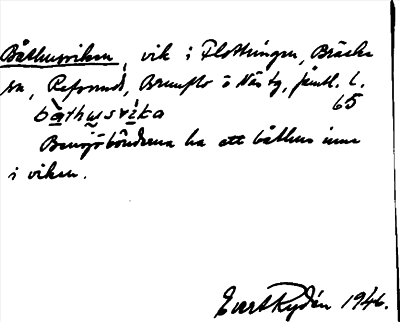 Båthusviken, vik i Flottingen, Bräcke
sn, Refsunds, Brunflo o Näs tg, Jämtl. l.
båthusvika 65
Bensjöbönderna ha ett båthus inne
i viken.
Evert Rydén 1946.